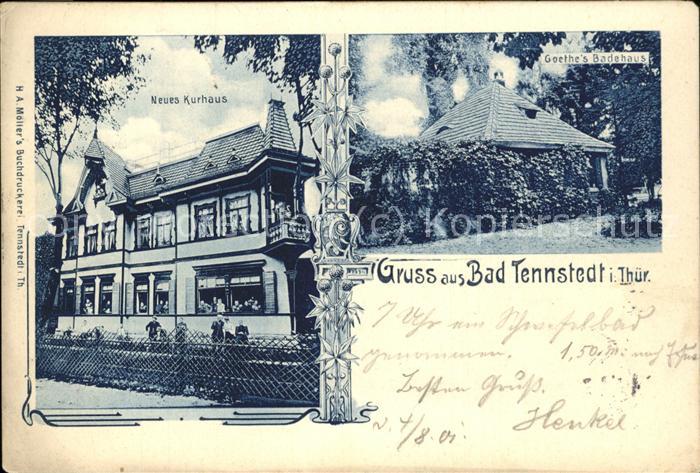 Neues Kurhaus
Goethe's Badehaus
H. A. Möller's Buchdruckerei Tennstedt i. Th.
Gruss aus Bad Tennstedt i. Thür.
7 Uhr ein Schwefelbad
genommen. 1,50 m. nach
Besten Gruß.
Henkel
4/8 01.
(c) Kopierschutz